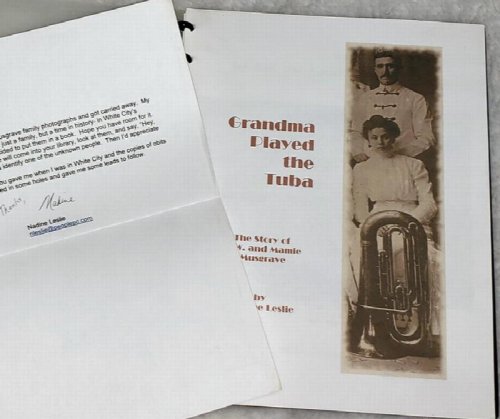 usgrave family photographs and got carried away. My
just a family, but a time in history- in White City's
cided to put them in a book. Hope you have room for it.
will come into your library, look at them, and say, "Hey,
identify one of the unknown people. Then I'd appreciate
ou gave me when I was in White City and the copies of obits
ed in some holes and gave me some leads to follow
Thanks, Nadine
Nadine Leslie
nleslie@peoplepc.com
Grandma
Played
the
Tuba
The Story of
. and Mamie
Musgrave
by
e Leslie